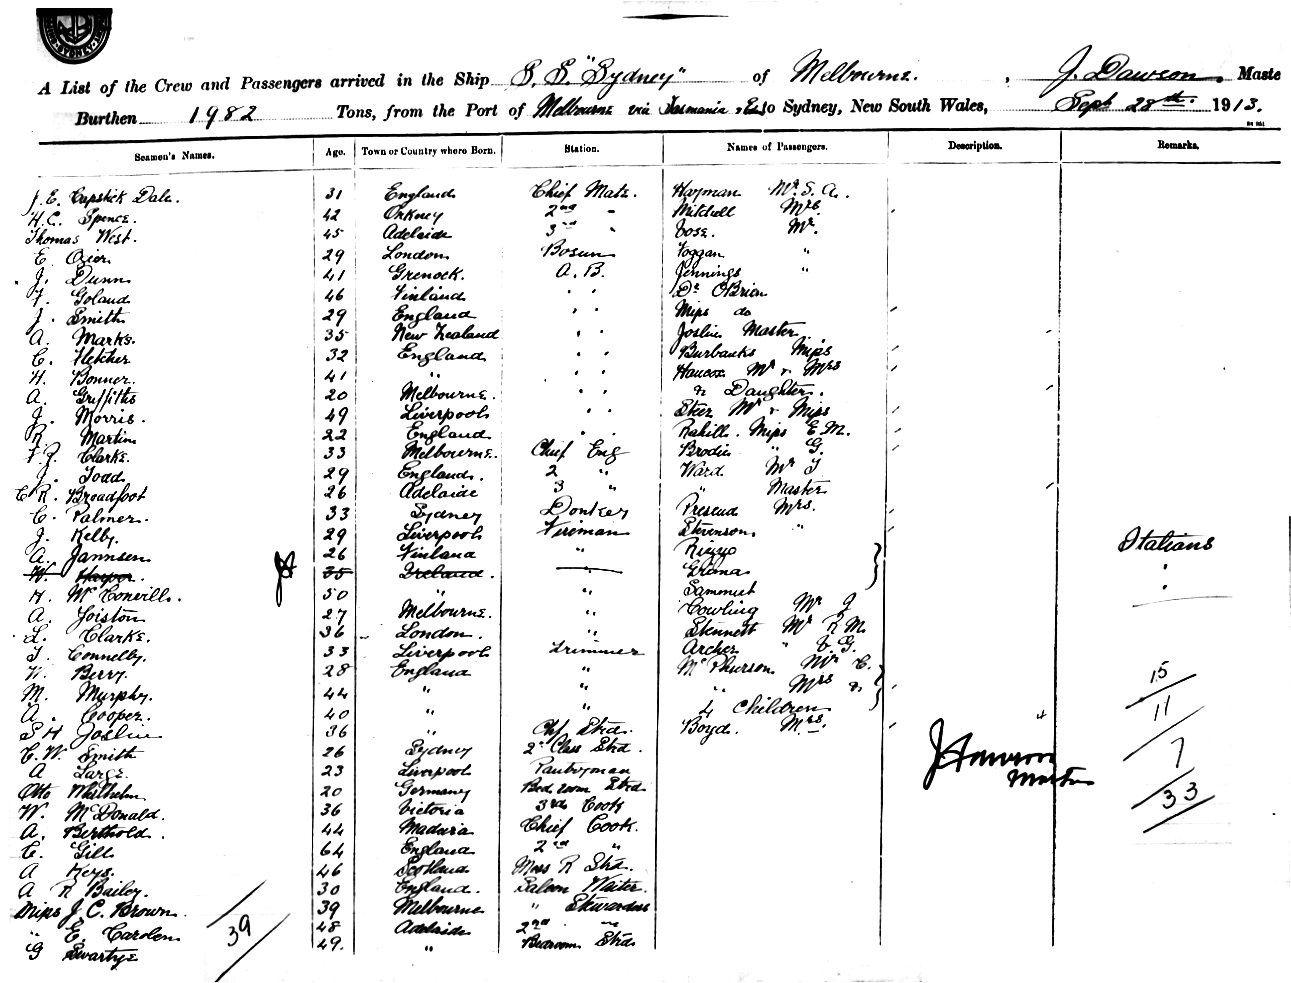 SYDNEY
A List of the Crew and Passengers arrived in the Ship S. S. "Sydney" of Melbourne. , J. Dawson. Maste
Burthen 1982 Tons, from the Port of Melbourne via Tasmania to Sydney, New South Wales, Sept 28th. 1913.
Seamen's Names. Age. Town or Country where Born. Station. Names of Passengers. Description. Remarks.
J. E. Capstick Dale. 31 England Chief Mate. Hayman Mr. S. A.
H. C. Spence. 42 Orkney 2nd " Mitchell Mrs.
Thomas West. 45 Adelaide 3rd " Vose. Mr.
E. Ozier 29 London Bosun Foggan "
J. Dunn 41 Grenock. A. B. Jennings "
F. Goland 46 Finland " " Dr OBrien
J. Smith 29 England " " Miss do
A. Marks. 35 New Zealand " " Joslin Master
C. Fletcher 32 England " " Burbanks Miss
H. Bonner. 41 " " " Hancox Mr & Mrs
A. Griffiths 20 Melbourne. " " & Daughter.
J. Morris. 49 Liverpool " " Steer Mr & Miss
R. Martin 22 England " " Rahill. Miss E. M.
F. J. Clarke. 33 Melbourne. Chief Eng Brodie " G.
J. Todd 29 England. 2 " Ward Mr J
C R. Broadfoot 26 Adelaide 3 " " Master
C. Palmer. 33 Sydney Donkey Prescud Mrs.
J. Kelby. 29 Liverpool Fireman Stevenson "
A. Jannsen 26 Finland " Rizzo Italians
W Harper. 35 Ireland. " Grana "
H. McConvill. 50 " " Sammut "
A. Joiston 27 Melbourne. " Cowling Mr J
L. Clarke. 36 London. " Stennett Mr R M.
T. Connelly. 33 Liverpool Trimmer Archer " V. G.
W. Berry. 28 England " McPhurson Mr C.
M. Murphy. 44 " " " Mrs & 15
A. Cooper. 40 " " 4 Children 11
S H Joslin 36 " Chf Strd. Boyd. Mrs.
C. W. Smith 26 Sydney 2nd Class Strd. J Dawson 7
A Large. 23 Liverpool Pantryman Master
Otto Whilhelm. 20 Germany Bed room Strd 33
W. McDonald. 36 Victoria 3rd Cook
A. Berthold. 44 Madeira Chief Cook.
C. Gill 64 England 2nd "
A Keys. 46 Scotland Mess R Strd.
A R Bailey. 30 England. Saloon Waiter.
Miss J. C. Brown. 39 Melbourne " Stewardess
" E. Carolen 48 Adelaide 2nd "
G Swartye 49. " Bedroom Strd
39